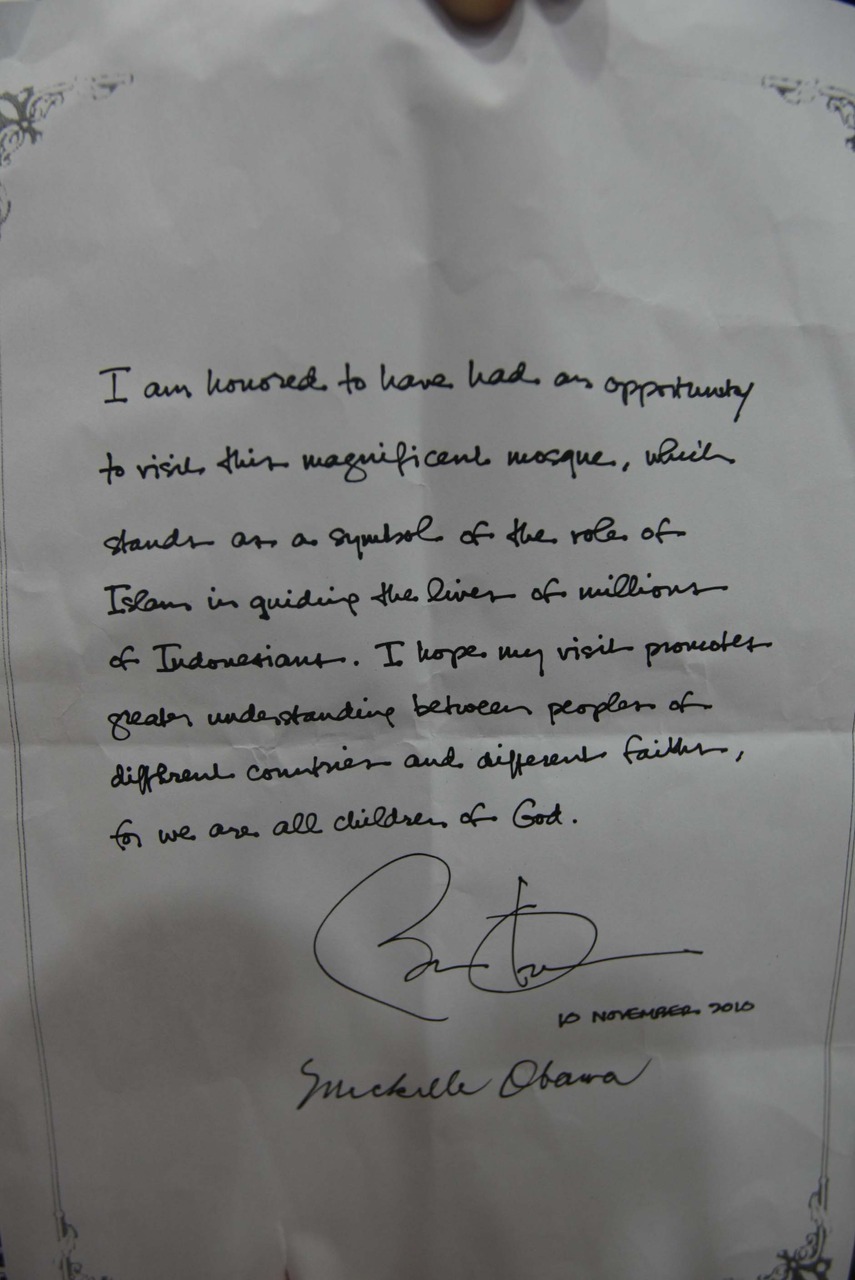 I am honored to have had an opportunity
to visit this magnificent mosque, which
stands as a symbol of the role of
Islam in guiding the lives of millions
of Indonesians. I hope my visit promotes
greater understanding between peoples of
different countries and different faiths,
for we are all children of God.
10 NOVEMBER 2010
Michelle Obama